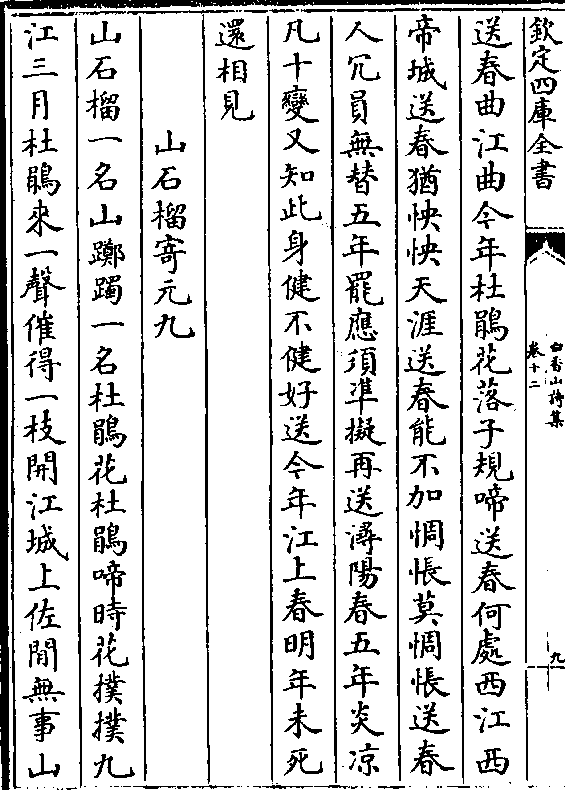 欽定四庫全書
白香山詩集
卷十二
九
送春曲江曲今年杜鵑花落子規啼送春何處西江西
帝城送春猶怏怏天涯送春能不加惆悵莫惆悵送春
人冗員無替五年罷應須凖擬再送潯陽春五年炎凉
凡十變又知此身健不健好送今年江上春明年未死
還相見
山石榴寄元九
山石榴一名山躑躅一名杜鵑花杜鵑啼時花撲撲九
江三月杜鵑來一聲催得一枝開江城上佐閒無事山